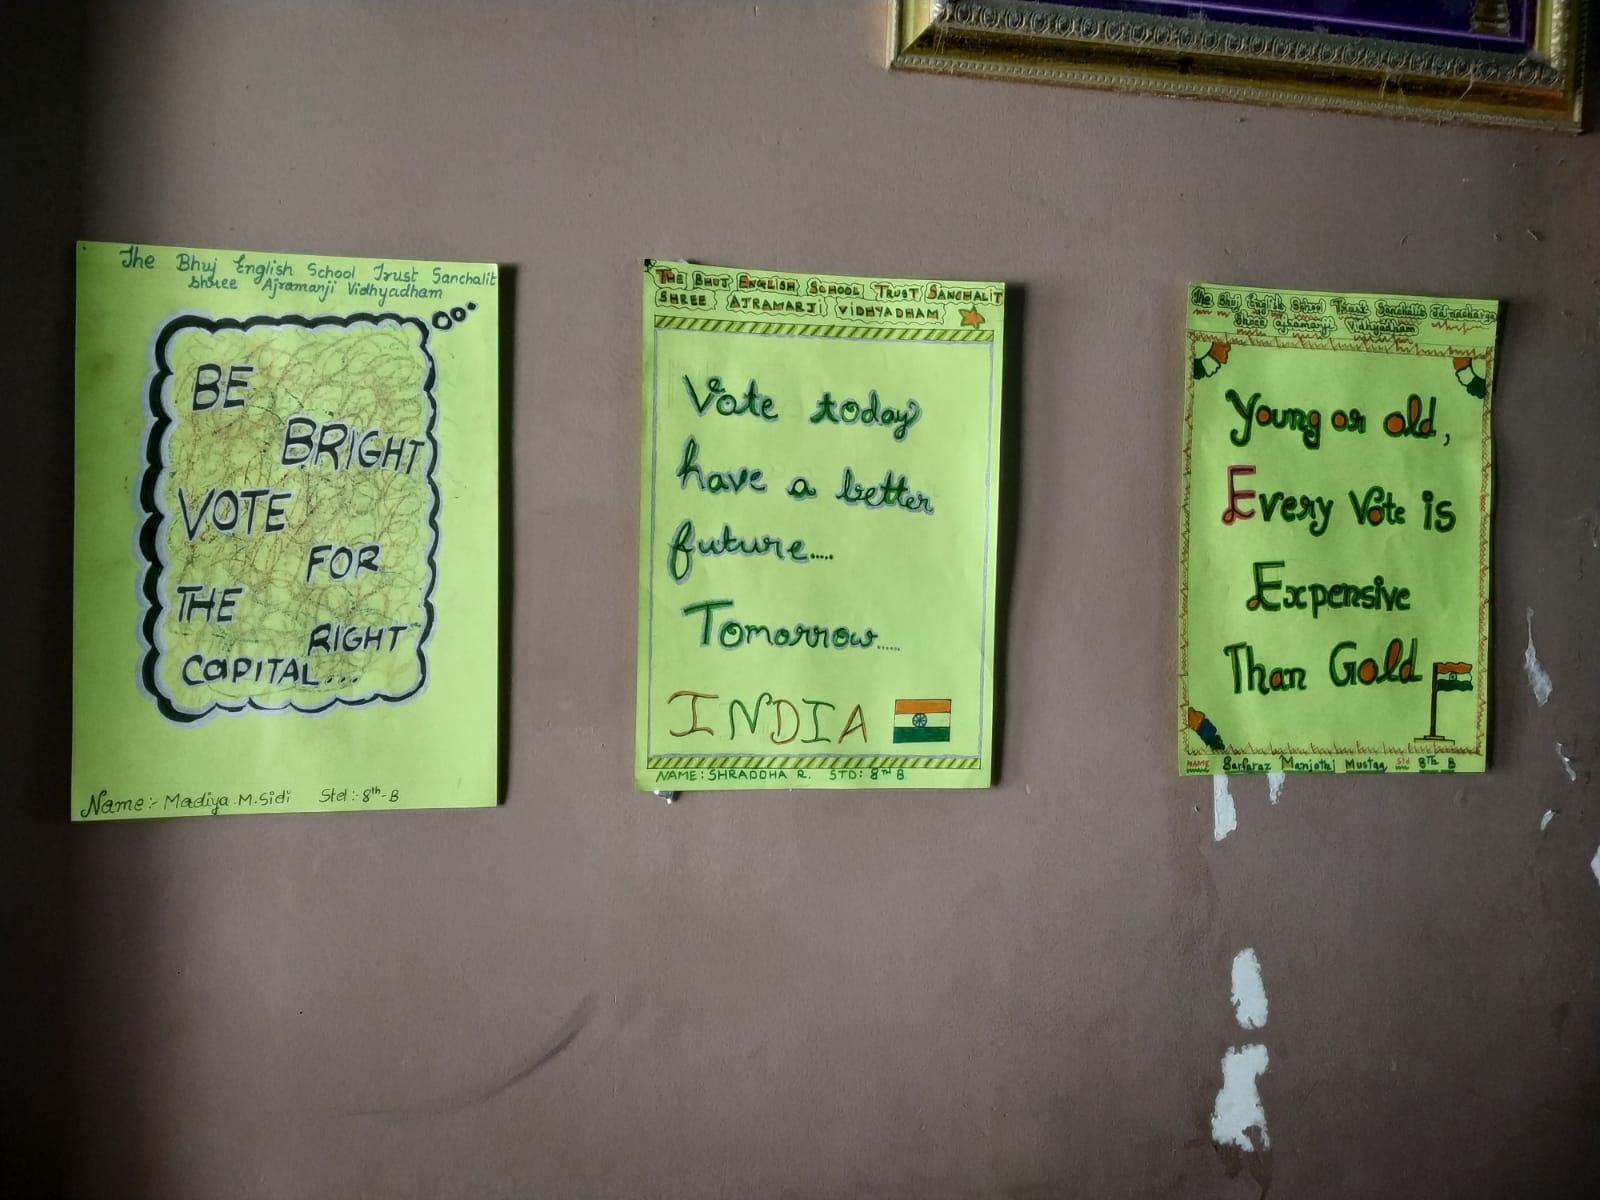 The Bhuj English School Trust Sanchalit
Shree Ajramarji Vidhyadham
BE
BRIGHT
VOTE
FOR
THE
RIGHT
CAPITAL...
Name:- Madiya.M.Sidi Std:- 8th-B
THE BHUJ ENGLISH SCHOOL TRUST SANCHALIT
SHREE AJRAMARJI VIDHYADHAM
Vote today
have a better
future....
Tomorrow.....
INDIA
NAME: SHRADDHA R. STD: 8TH B
The Bhuj English School Trust Sanchalit
Shree Ajramarji Vidhyadham
Young or old,
Every Vote is
Expensive
Than Gold
NAME Sarfaraz Manjothi Std 8th B